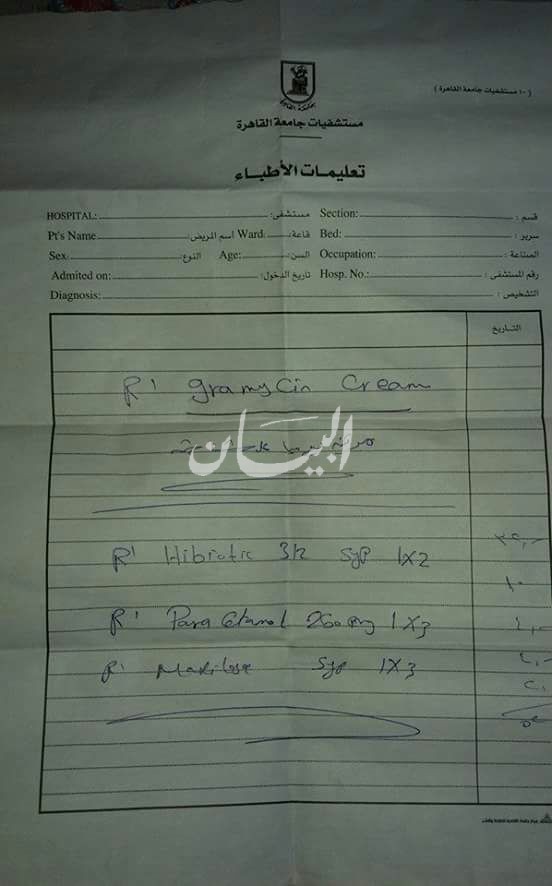 ( ١٠ مستشفيات جامعة القاهرة )
جامعة القاهرة
مستشفيات جامعة القاهرة
تعليمات الأطباء
HOSPITAL: مستشفى: Section: قسم :
Pt's Name اسم المريض: Ward: قاعة: Bed: سرير :
Sex النوع: Age: السن: Occupation: الصناعة :
Admited on: تاريخ الدخول: Hosp. No.: رقم المستشفى :
Diagnosis: التشخيص :
التاريخ
R' gramycin Cream
البيان
R' Hibiotic 312 syp 1X2
١٠
R' Paracetamol 200mg 1X3
R' Maxilase Syp 1X3